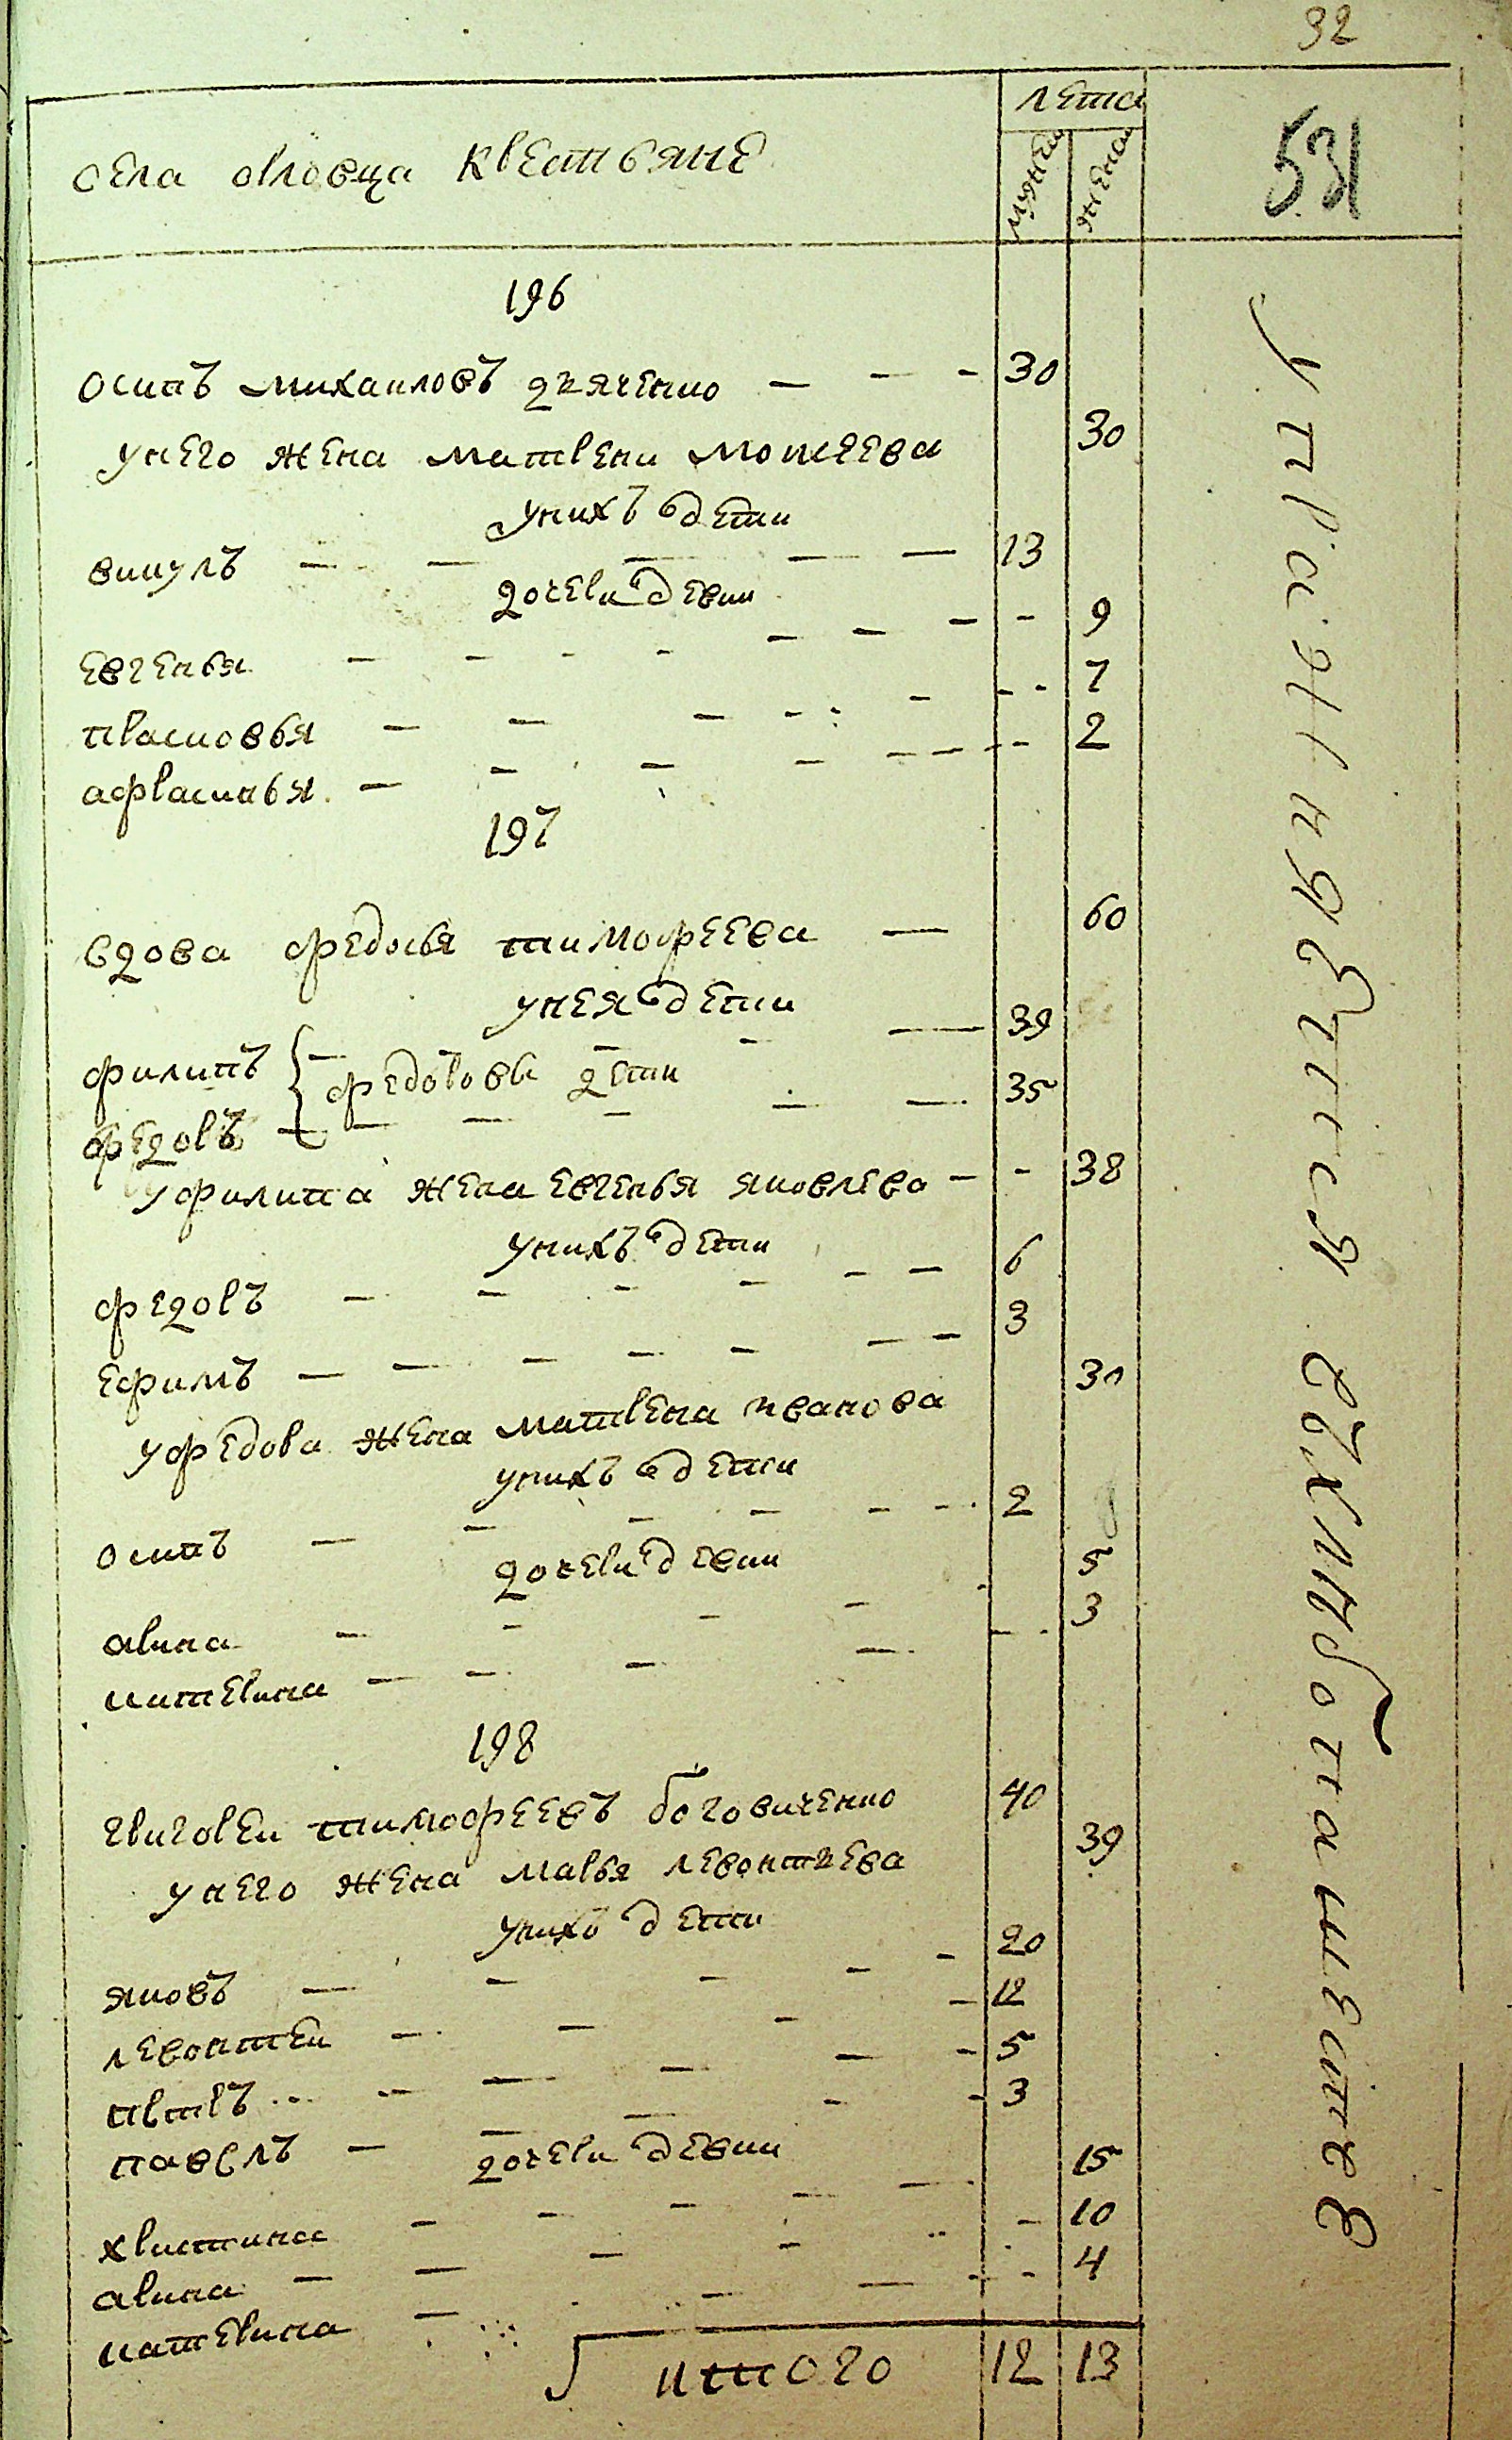 32
села орловца крестьяне
лета
мужеи
женои
531
196
осипъ михаиловъ дяченко 30
унего жена матрени мощеева 30
унихъ дети
викулъ 13
дочери девки
евгенья 9
прасковья 7
афрасинья 2
197
вдова федосья тимофеева 60
унея дети
филипъ 39
федоровы дети
федоръ 35
уфилипа жена евгенья яковлева 38
унихъ дети
федоръ 6
ефимъ 3
уфедора жена матрена иванова 31
унихъ дети
осипъ 2
дочери девки
арина 5
катерина 3
198
григореи тимофеевъ боговиченко 40
унего жена марья левонтьева 39
унихъ дети
яковъ 20
левонтеи 12
пвтръ 5
павелъ 3
дочери девки
христина 15
арина 10
катерина 4
итого 12 13
упражняется